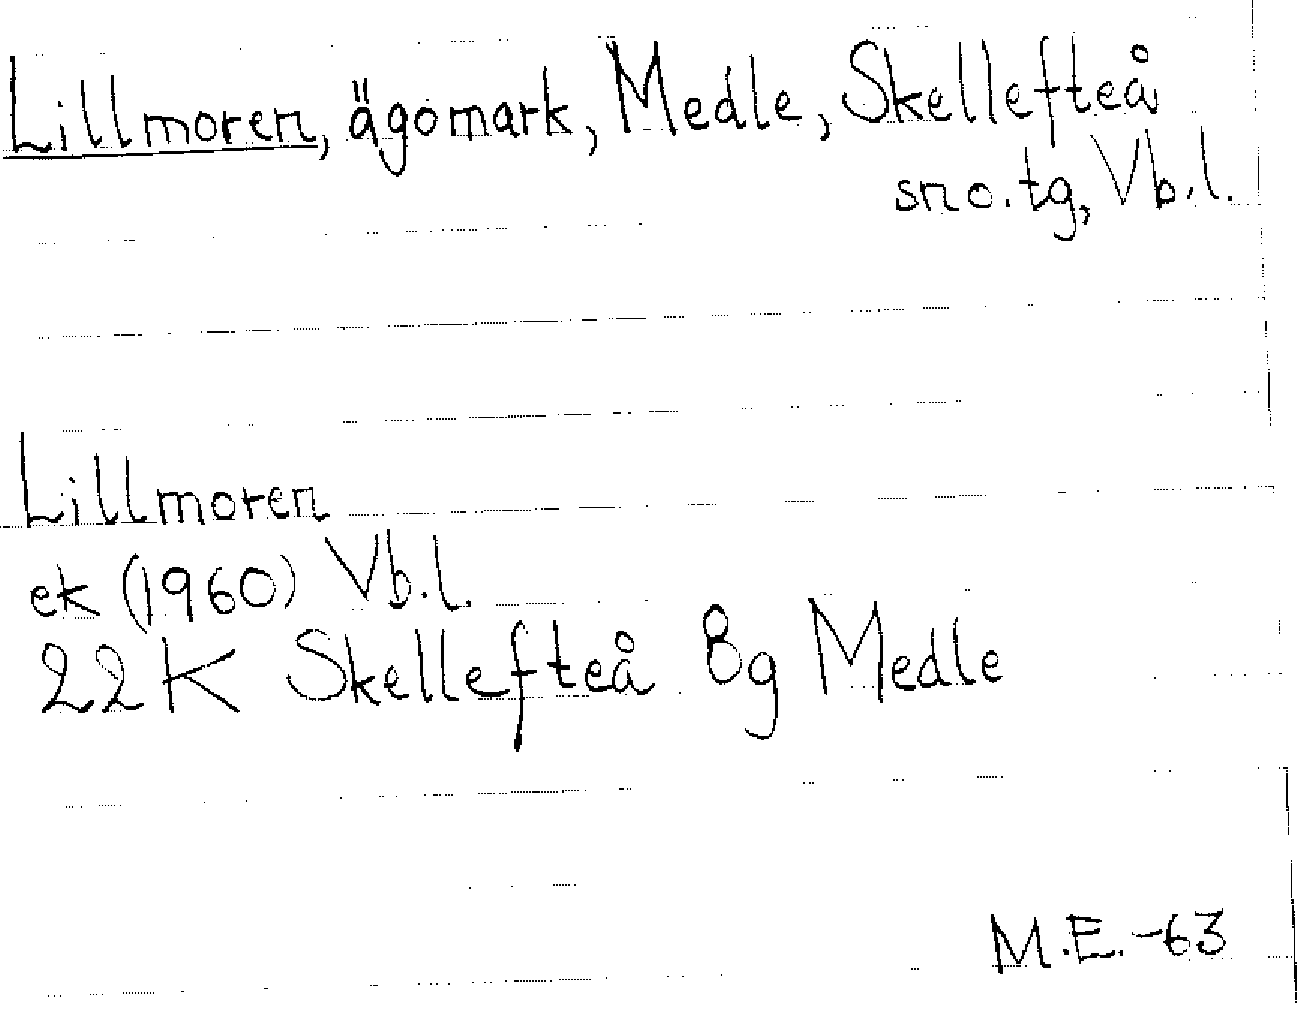 Lillmoren, ägomark, Medle, Skellefteå
sn o. tg, Vb.l.
Lillmoren
ek (1960) Vb.l.
22K Skellefteå 8g Medle
M.E. -63